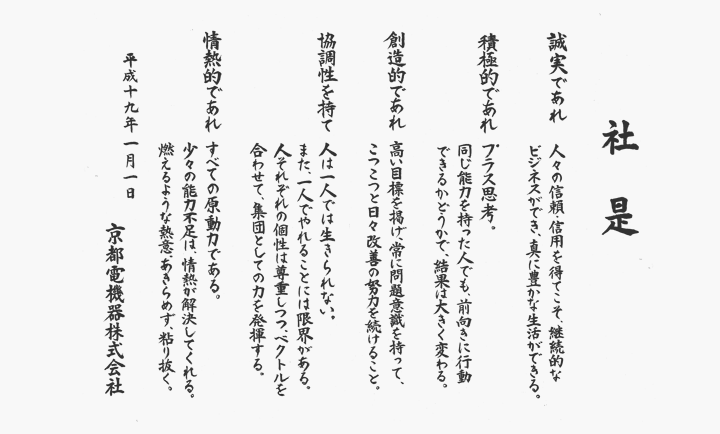 社是
誠実であれ
人々の信頼・信用を得てこそ、継続的な
ビジネスができ、真に豊かな生活ができる。
積極的であれ
プラス思考。
同じ能力を持った人でも、前向きに行動
できるかどうかで、結果は大きく変わる。
創造的であれ
高い目標を掲げ、常に問題意識を持って、
こつこつと日々改善の努力を続けること。
協調性を持て
人は一人では生きられない。
また、一人でやれることには限界がある。
人それぞれの個性は尊重しつつ、ベクトルを
合わせて、集団としての力を発揮する。
情熱的であれ
すべての原動力である。
少々の能力不足は、情熱が解決してくれる。
燃えるような熱意、あきらめず、粘り抜く。
平成十九年一月一日
京都電機器株式会社